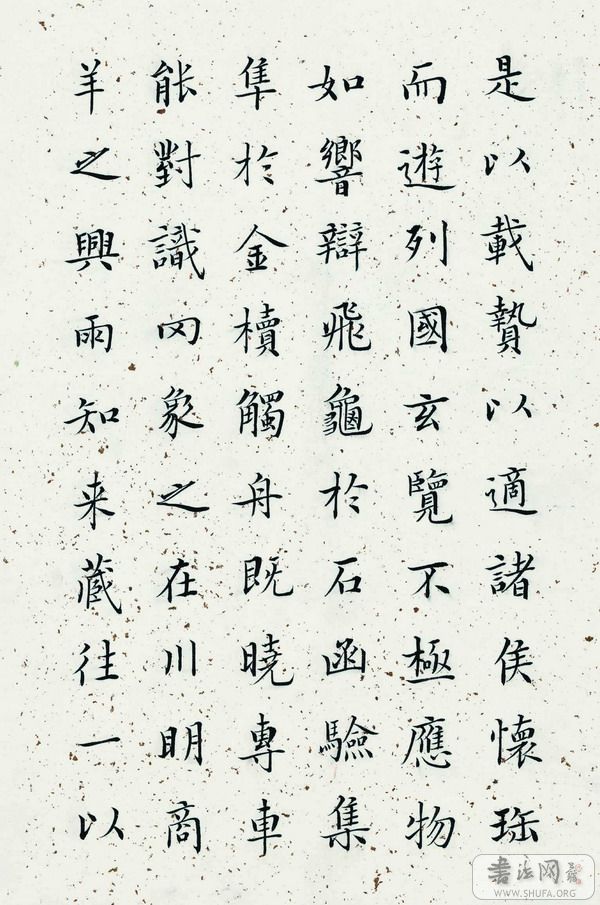 是以載贄以適諸侯懷珎
而遊列國玄覽不極應物
如響辯飛龜於石函驗集
隼於金櫝觸舟既曉專車
能對識罔象之在川明商
羊之興雨知来藏往一以
書法网
WWW.SHUFA.ORG